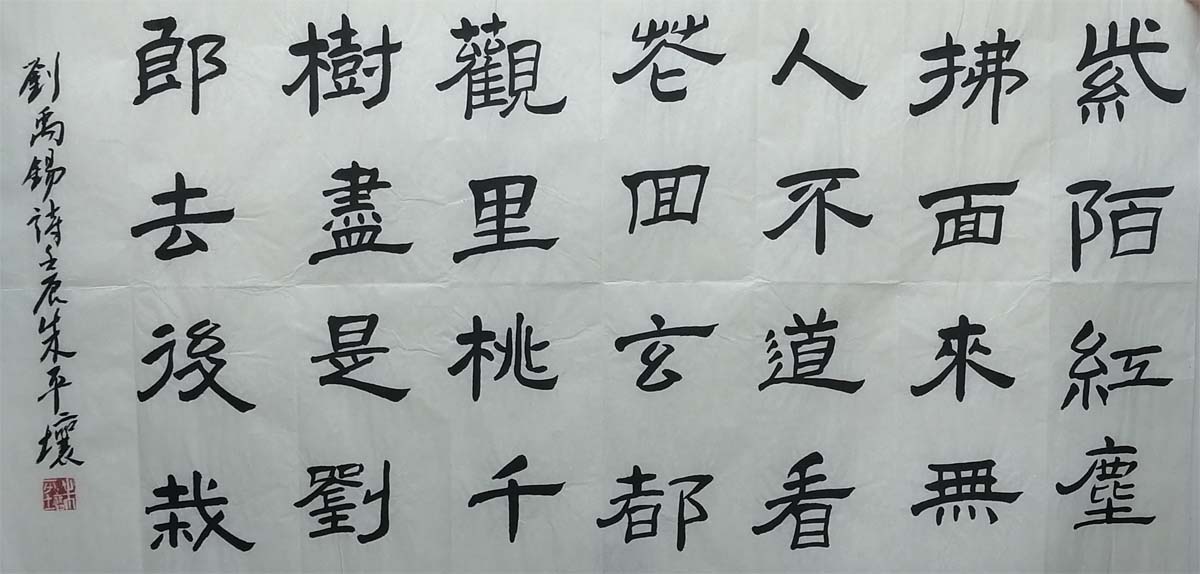 紫陌紅塵
拂面來無
人不道看
花回玄都
觀里桃千
樹盡是劉
郎去後栽
劉禹錫詩壬辰朱平壤